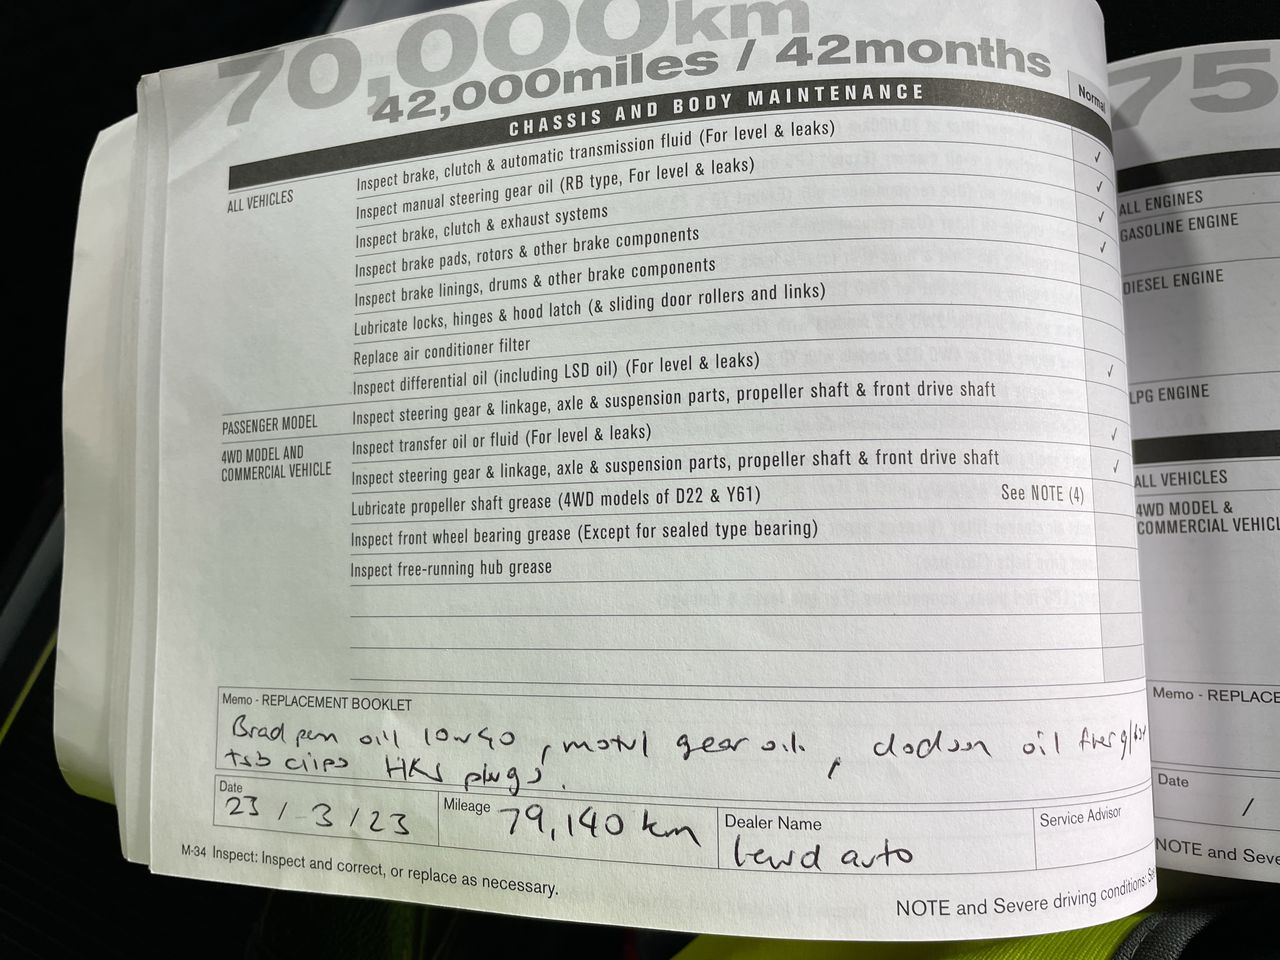 70,000km
42,000miles / 42months
CHASSIS AND BODY MAINTENANCE
Normal
ALL VEHICLES
Inspect brake, clutch & automatic transmission fluid (For level & leaks) ✓
Inspect manual steering gear oil (RB type, For level & leaks) ✓
Inspect brake, clutch & exhaust systems ✓
Inspect brake pads, rotors & other brake components ✓
Inspect brake linings, drums & other brake components
Lubricate locks, hinges & hood latch (& sliding door rollers and links)
Replace air conditioner filter
Inspect differential oil (including LSD oil) (For level & leaks) ✓
PASSENGER MODEL
Inspect steering gear & linkage, axle & suspension parts, propeller shaft & front drive shaft
4WD MODEL AND
COMMERCIAL VEHICLE
Inspect transfer oil or fluid (For level & leaks) ✓
Inspect steering gear & linkage, axle & suspension parts, propeller shaft & front drive shaft ✓
Lubricate propeller shaft grease (4WD models of D22 & Y61) See NOTE (4)
Inspect front wheel bearing grease (Except for sealed type bearing)
Inspect free-running hub grease
Memo - REPLACEMENT BOOKLET
Brad pen oil 10w40, motul gear oil, dodson oil
clips HKS plugs.
Date
23 / 3 / 23
Mileage
79,140 km
Dealer Name
auto
Service Advisor
M-34 Inspect: Inspect and correct, or replace as necessary.
NOTE and Severe driving conditions:
75
ALL ENGINES
GASOLINE ENGINE
DIESEL ENGINE
LPG ENGINE
ALL VEHICLES
4WD MODEL &
COMMERCIAL VEHICL
Memo - REPLACE
Date
/
NOTE and Seve